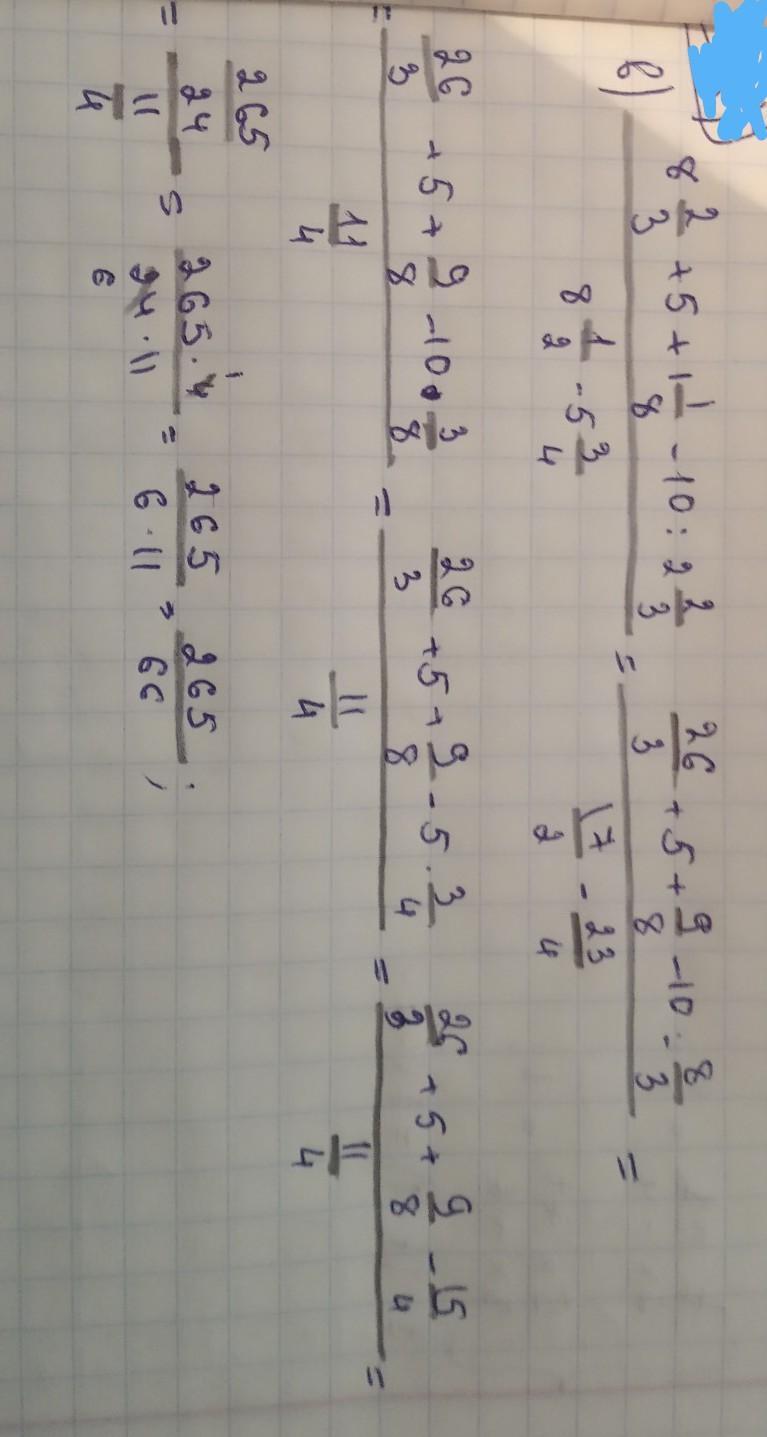 в) (8 2/3 + 5 + 1 1/8 - 10 : 2 2/3) / (8 1/2 - 5 3/4) = (26/3 + 5 + 9/8 - 10 : 8/3) / (17/2 - 23/4) =
= (26/3 + 5 + 9/8 - 10 · 3/8) / (11/4) = (26/3 + 5 + 9/8 - 5 · 3/4) / (11/4) = (26/3 + 5 + 9/8 - 15/4) / (11/4) =
= (265/24) / (11/4) = (265 · 4 1) / (24 6 · 11) = 265 / (6 · 11) = 265/66 ;